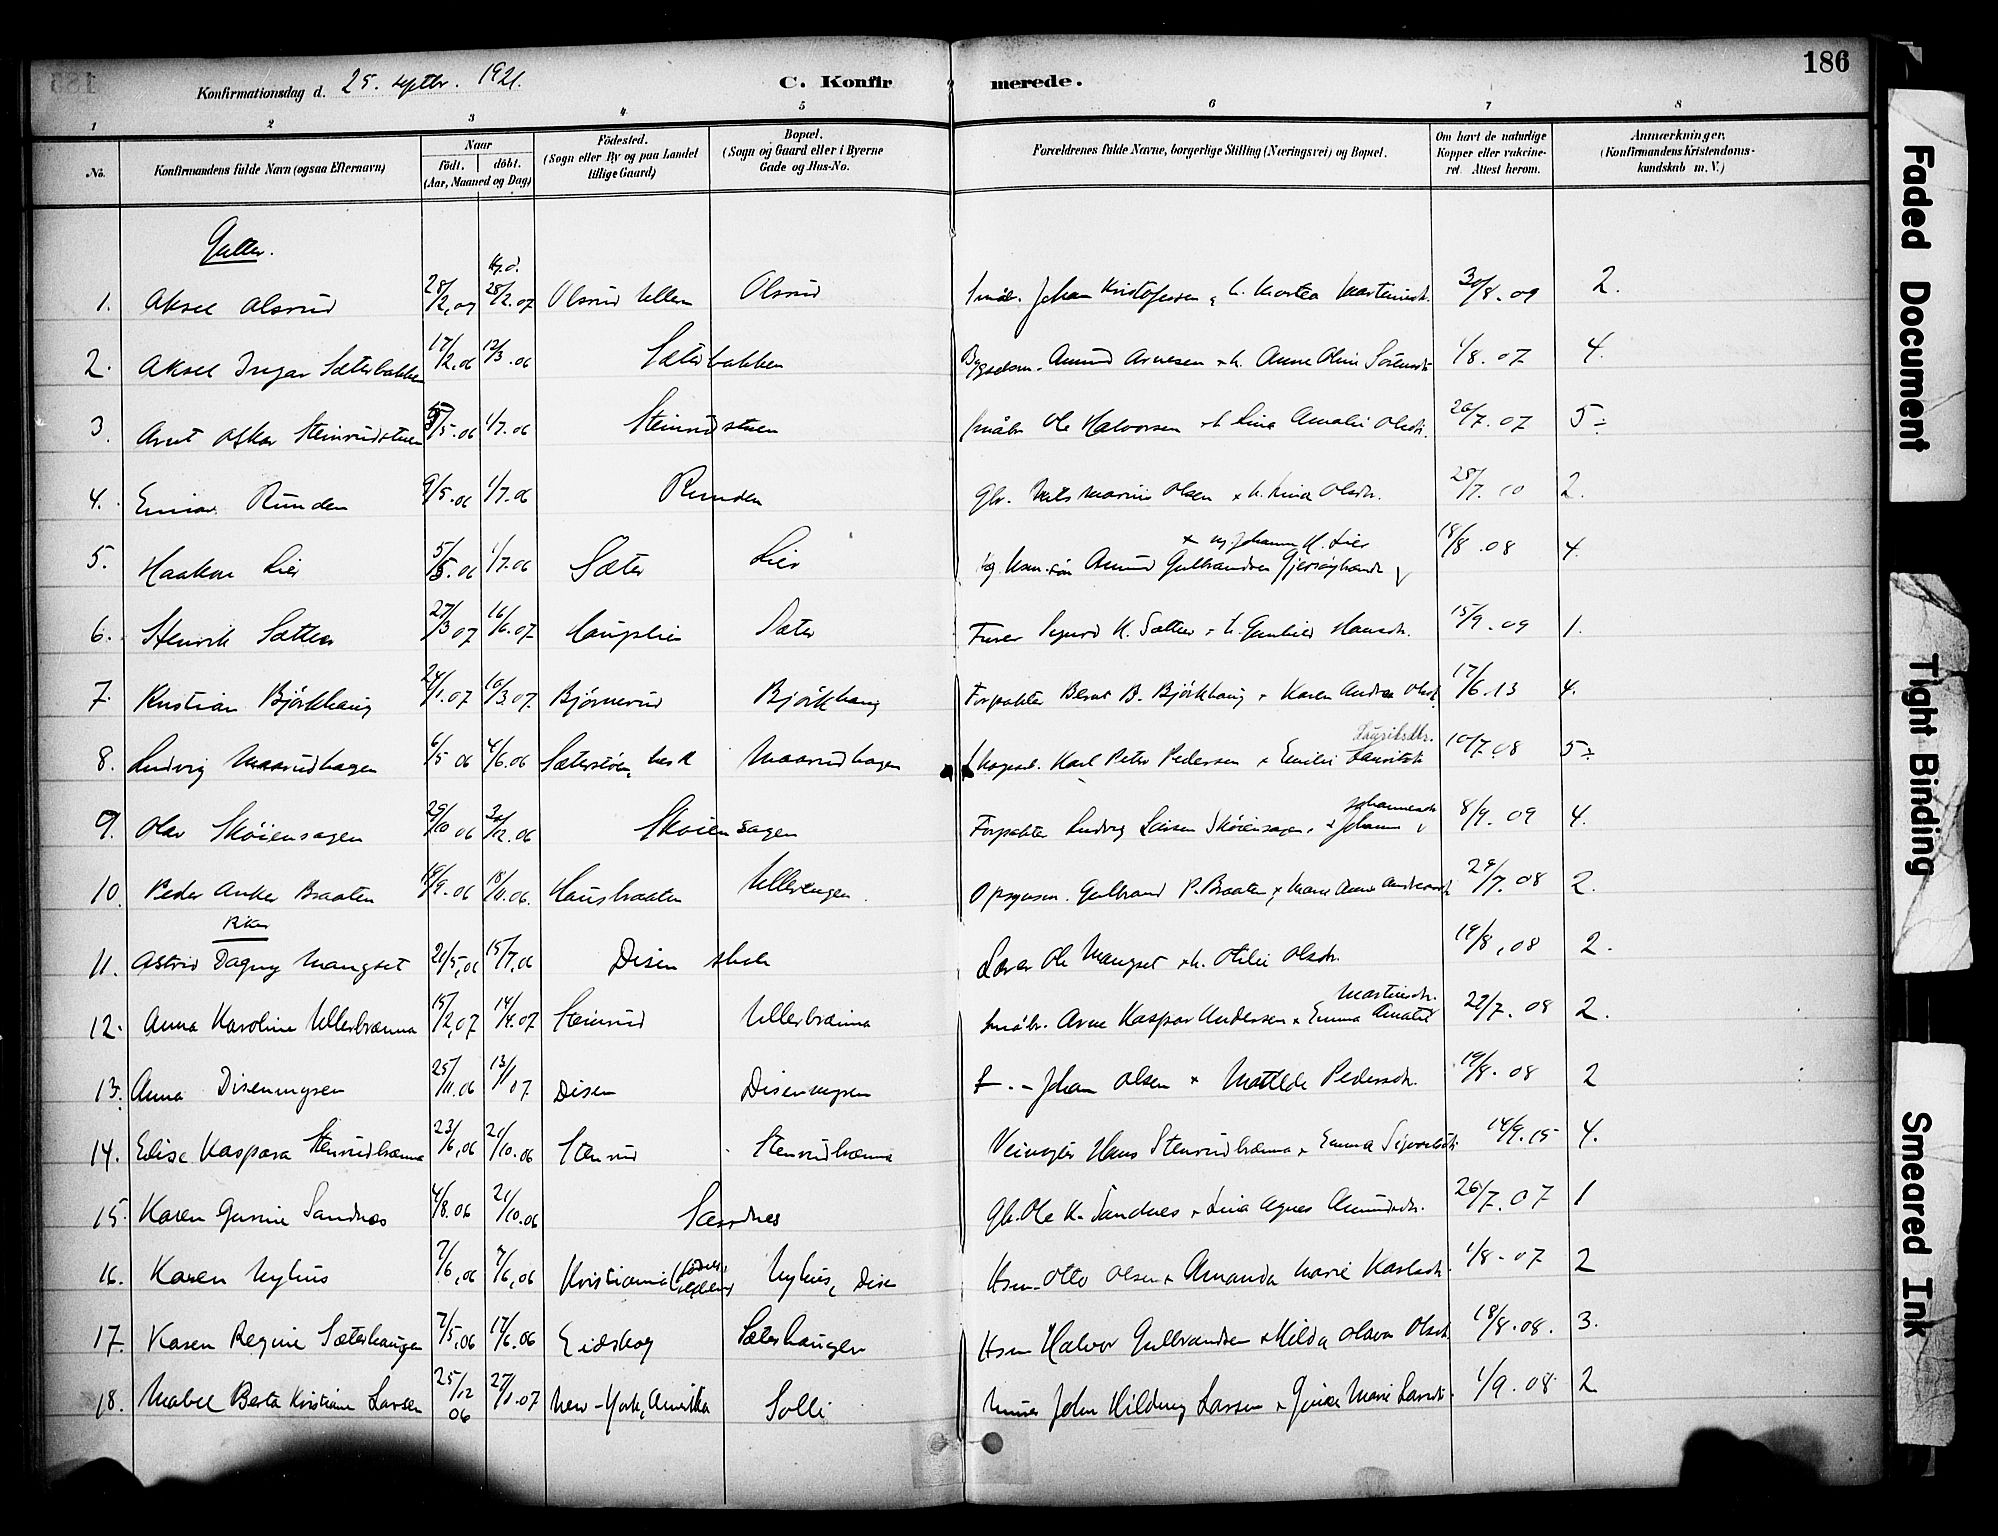 186
Konfirmationsdag d. 25. septbr. 1921.
C. Konfirmerede.
1 2 3 4 5 6 7 8
No.
Konfirmandens fulde Navn (ogsaa Efternavn)
Naar
födt. döbt.
(Aar, Maaned og Dag)
Födested.
(Sogn eller By og paa Landet
tillige Gaard)
Bopæl.
(Sogn og Gaard eller i Byerne
Gade og Hus-No.
Forældrenes fulde Navne, borgerlige Stilling (Næringsvei) og Bopæl.
Om havt de naturlige
Kopper eller vakcine-
ret. Attest herom.
Anmærkninger.
(Konfirmandens Kristendoms-
kundskab m. V.)
Gutter.
1. Aksel Olsrud 28/2.07 28/2.07 Olsrud Ullern Olsrud Johan Kristofersen 30/8.09 2.
2. Aksel Ingar Sæterbakken 17/2.06 12/3.06 Sæterbakken Amund Arnesen Anne Oline 1/8.07 4.
3. Arnt Oskar Steinrudstuen 5/5.06 1/7.06 Steinrudstuen Småbr. Ole Halvorsen Lina Amalie Olsdtr. 26/7.07 5-
4. Einar Runden 9/5.06 1/7.06 Runden Gbr. Nils Marius Olsen h. Lina Olsdtr. 28/7.10 2.
5. Haakon Lier 5/5.06 1/7.06 Sæter Lier Amund Gulbrandsen 18/8.08 4.
Johanne K. Lier
6. Henrik Sætter 27/3 07 16/6.07 Haugslien Sæter Sigurd K. Sætter h. Gunhild Hansdtr. 15/9.09 1.
7. Kristian Björkhaug 24/1.07 10/3.07 Bjørnerud Björkhaug Forpakter Bernt B. Björkhaug Karen Andrea Olsdtr. 17/6.13 4.
8. Ludvig Maarudhagen 6/5 06 4/6.06 Maarudhagen Karl Peter Pedersen Emilie Lauritsdtr. 10/7.08 5-
Lauritsdtr.
9. Olav Skøiensagen 29/10 06 30/12.06 Skøiensagen Forpakter Ludvig Larsen Skøiensagen Johanne 8/9.09 4.
Johannesdtr.
10. Peder Anker Braaten 18/9.06 18/11.06. Hausbraaten Ullerengen Opsynsm. Gulbrand P. Braaten 29/7.08 2.
Piker
11. Astrid Dagny Mangset 21/5.06 15/7.06 Disen skole Lærer Ole Mangset h. Otilie Olsdtr. 19/8.08 2.
12. Anna Karoline Ullerbrænna 15/2.07 14/4.07 Steinrud Ullerbrænna Småbr. Arne Kaspar Andersen Emma Amalie 27/7.08 2.
Martinsdtr.
13. Anna Disenmyren 25/11.06 13/1 07 Disen Disenmyren Johan Olsen Matilde Pedersdtr. 19/8.08 2
14. Elise Kaspara Stenrudbrænna 23/6.06 21/10.06 Stenrud Stenrudbrænna Hans Stenrudbrænna Emma 14/9.15 4.
15. Karen Gunine Sandnes 4/8.06 21/10.06 Sandnes Gbr. Ole K. Sandnes Lina Agnes Amundsdtr. 26/7.07 1
16. Karen Nyhus 7/6.06 7/6.06 Kristiania Nyhus, Disen Hsm. Otto Olsen Amanda Marie Karlsdtr. 1/8.07 2
17. Karen Regine Sæterhaugen 7/5.06 17/6.06 Eidskog Sæterhaugen Hsm Halvor Gulbrandsen Hilda Olava Olsdtr. 18/8.08. 3.
18. Mabel Berta Kristiane Larsen 25/12 06 27/1.07 New-York, Amerika Solli Murer John Hilding Larsen Marie 1/9.08 2
Faded Document
Tight Binding
Smeared Ink